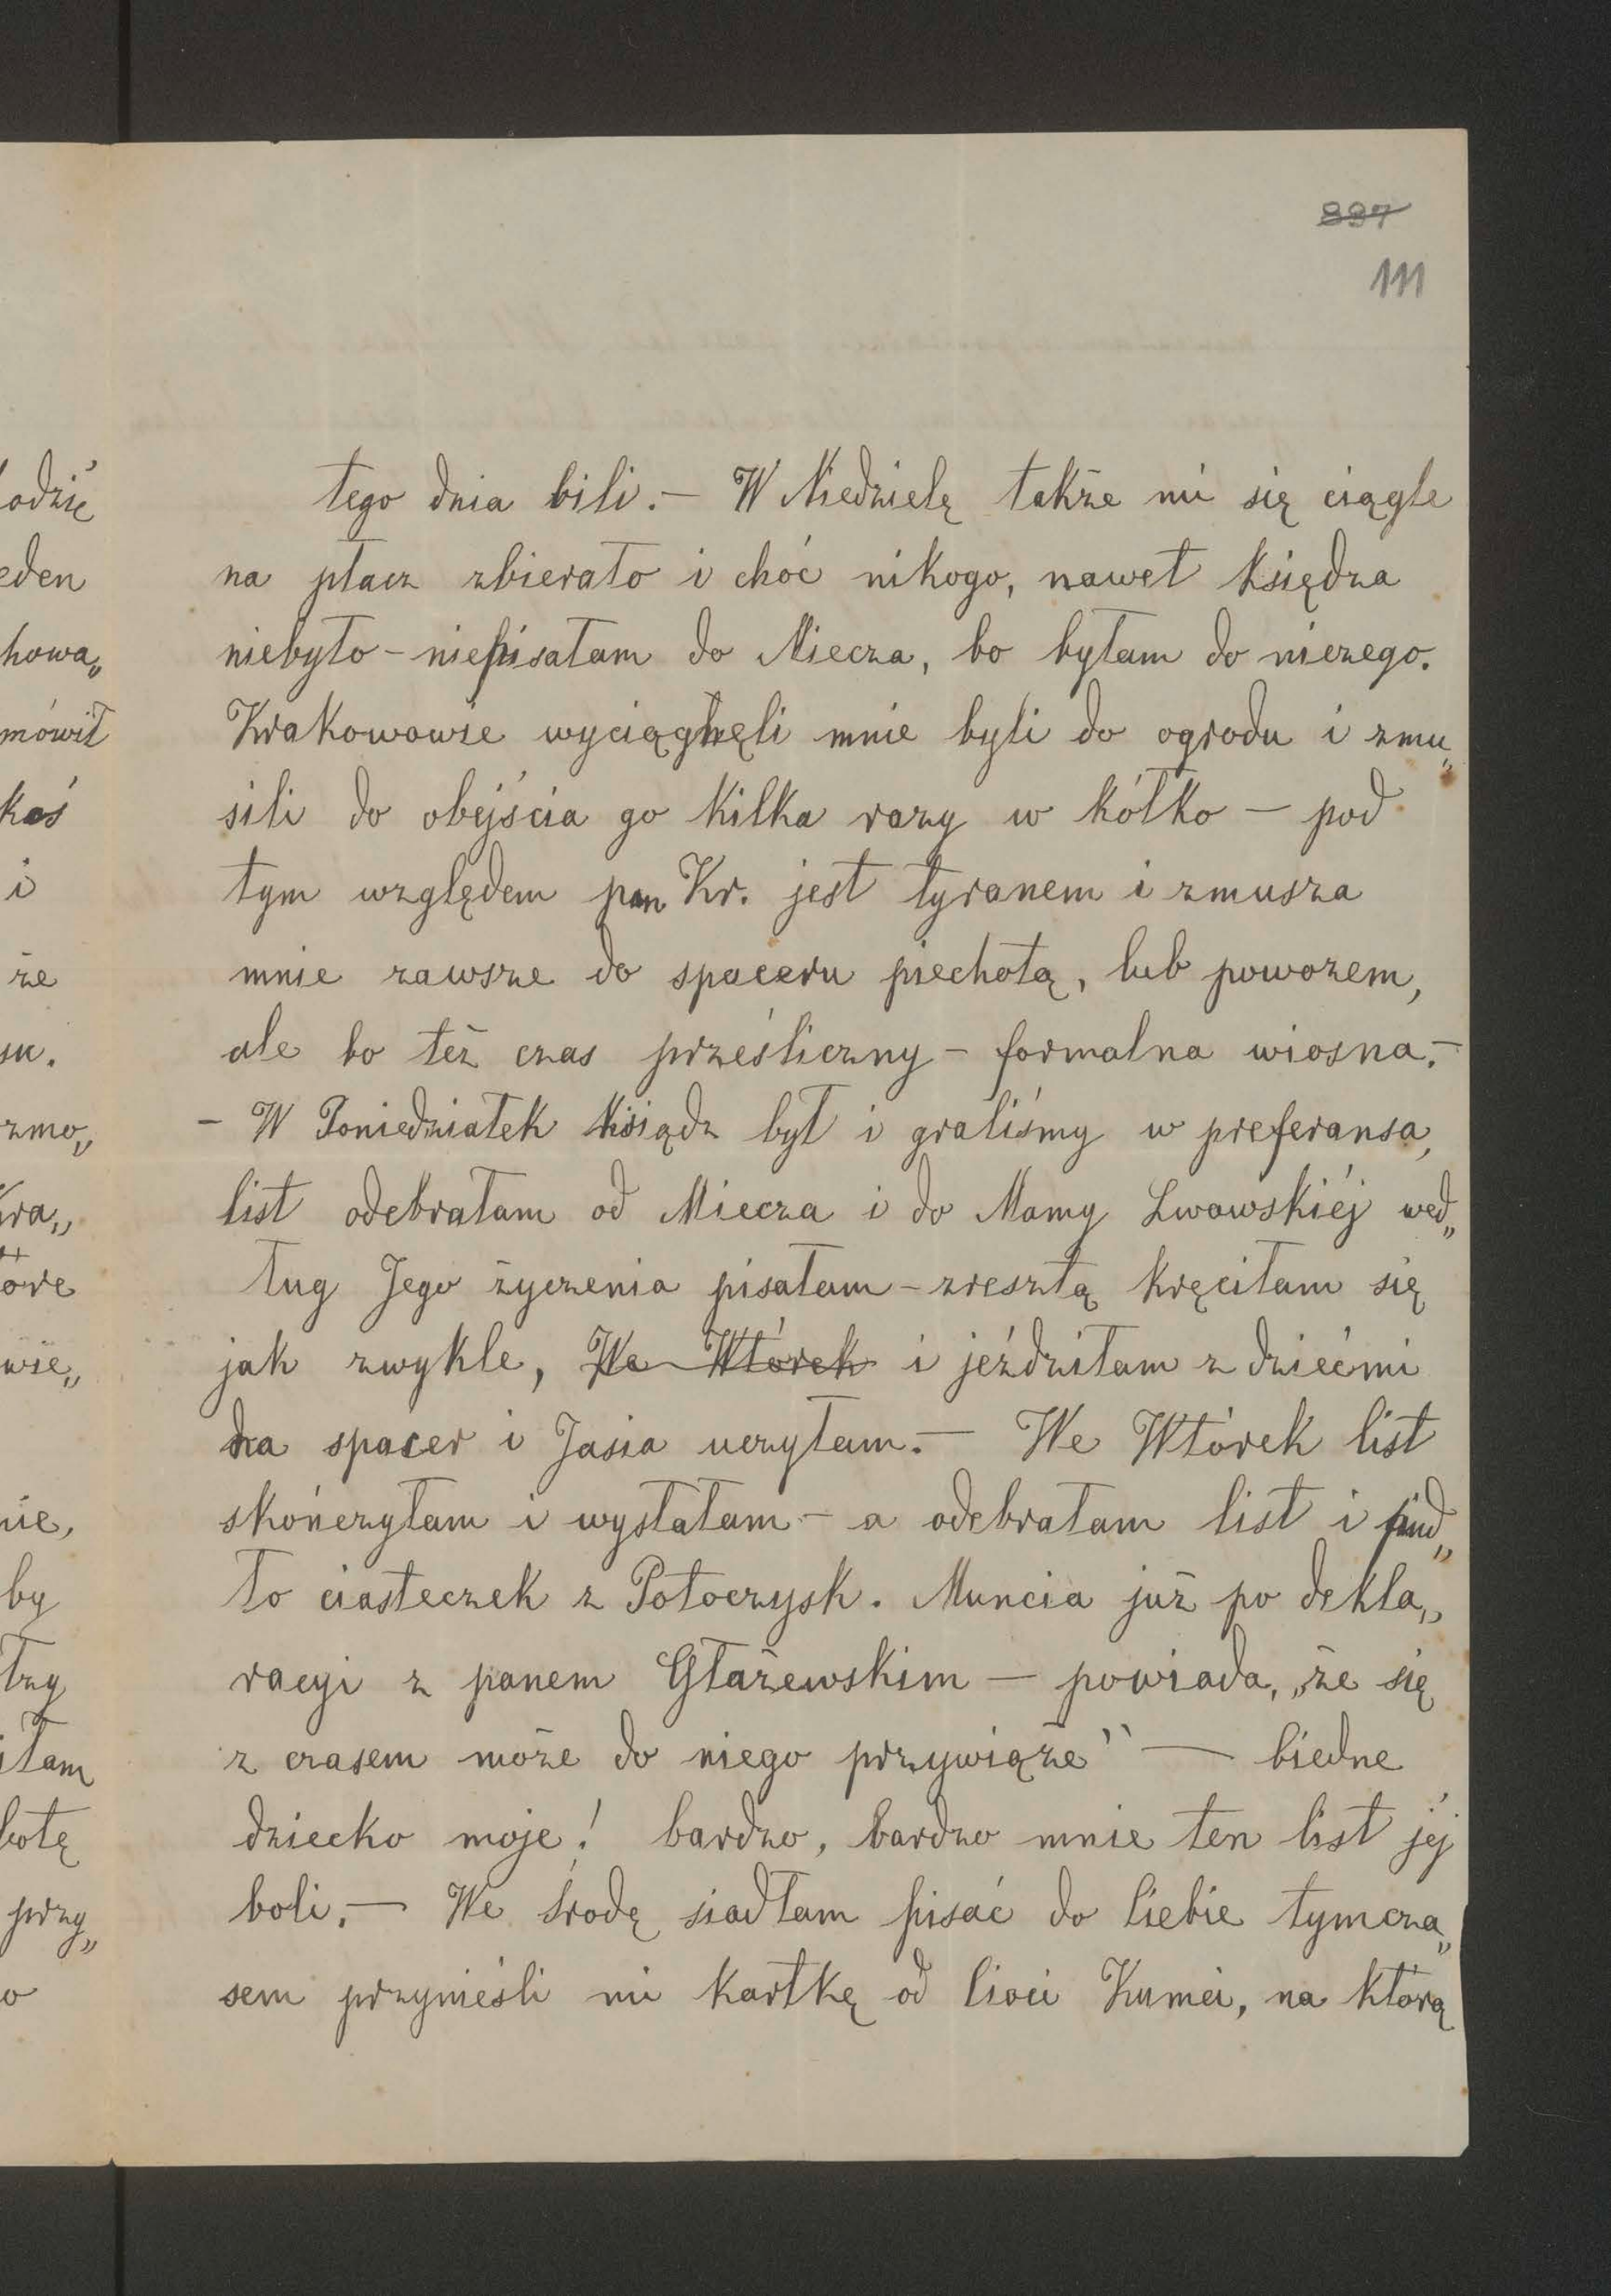 897
111
tego dnia bili. — W Niedzielę także mi się ciągle
na płacz zbierało i choć nikogo, nawet księdza
niebyło – niepisałam do Miecza, bo byłam do niczego.
Krakowowie wyciągnęli mnie byli do ogrodu i zmu„
sili do obejścia go kilka razy w kółko — pod
tym względem pan Kr. jest tyranem i zmusza
mnie zawsze do spaceru piechotą, lub powozem,
ale bo też czas prześliczny – formalna wiosna. –
– W Poniedziałek ksiądz był i graliśmy w preferansa,
list odebrałam od Miecza i do Mamy Lwowskiéj wed„
ług Jego życzenia pisałam – zresztą kręciłam się
jak zwykle, We Wtórek i jeździłam z dziećmi
na spacer i Jasia uczyłam. — We Wtórek list
skończyłam i wysłałam – a odebrałam list i pud„
ło ciasteczek z Potoczysk. Muncia już po dekla„
racyi z panem Głażewskim — powiada, „że się
z czasem może do niego przywiąże" — biedne
dziecko moje! bardzo, bardzo mnie ten list jéj
boli. — We środę siadłam pisać do Ciebie tymcza„
sem przynieśli mi kartkę od Cioci Kumci, na którą
odzię
eden
howa„
mówił
koś
i
że
su.
zmo„
Kra„
óre
wie„
nie,
by
trzy
iłam
botę
przy„
o